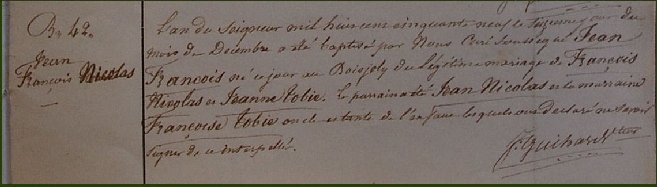 B. 42.
Jean
François Nicolas
L'an du Seigneur mil huit cens cinquante neuf le seizieme jour du
mois de Décembre a été baptisé par Nous Curé soussigné Jean
François né ce jour au Boisjoly du légitime mariage de François
Nicolas et Jeanne Tobie. Le parrain a été Jean Nicolas et la marraine
Françoise Tobie oncle et tante de l'enfant lesquels ont déclaré ne savoir
signer de ce interpellé.
Guihard